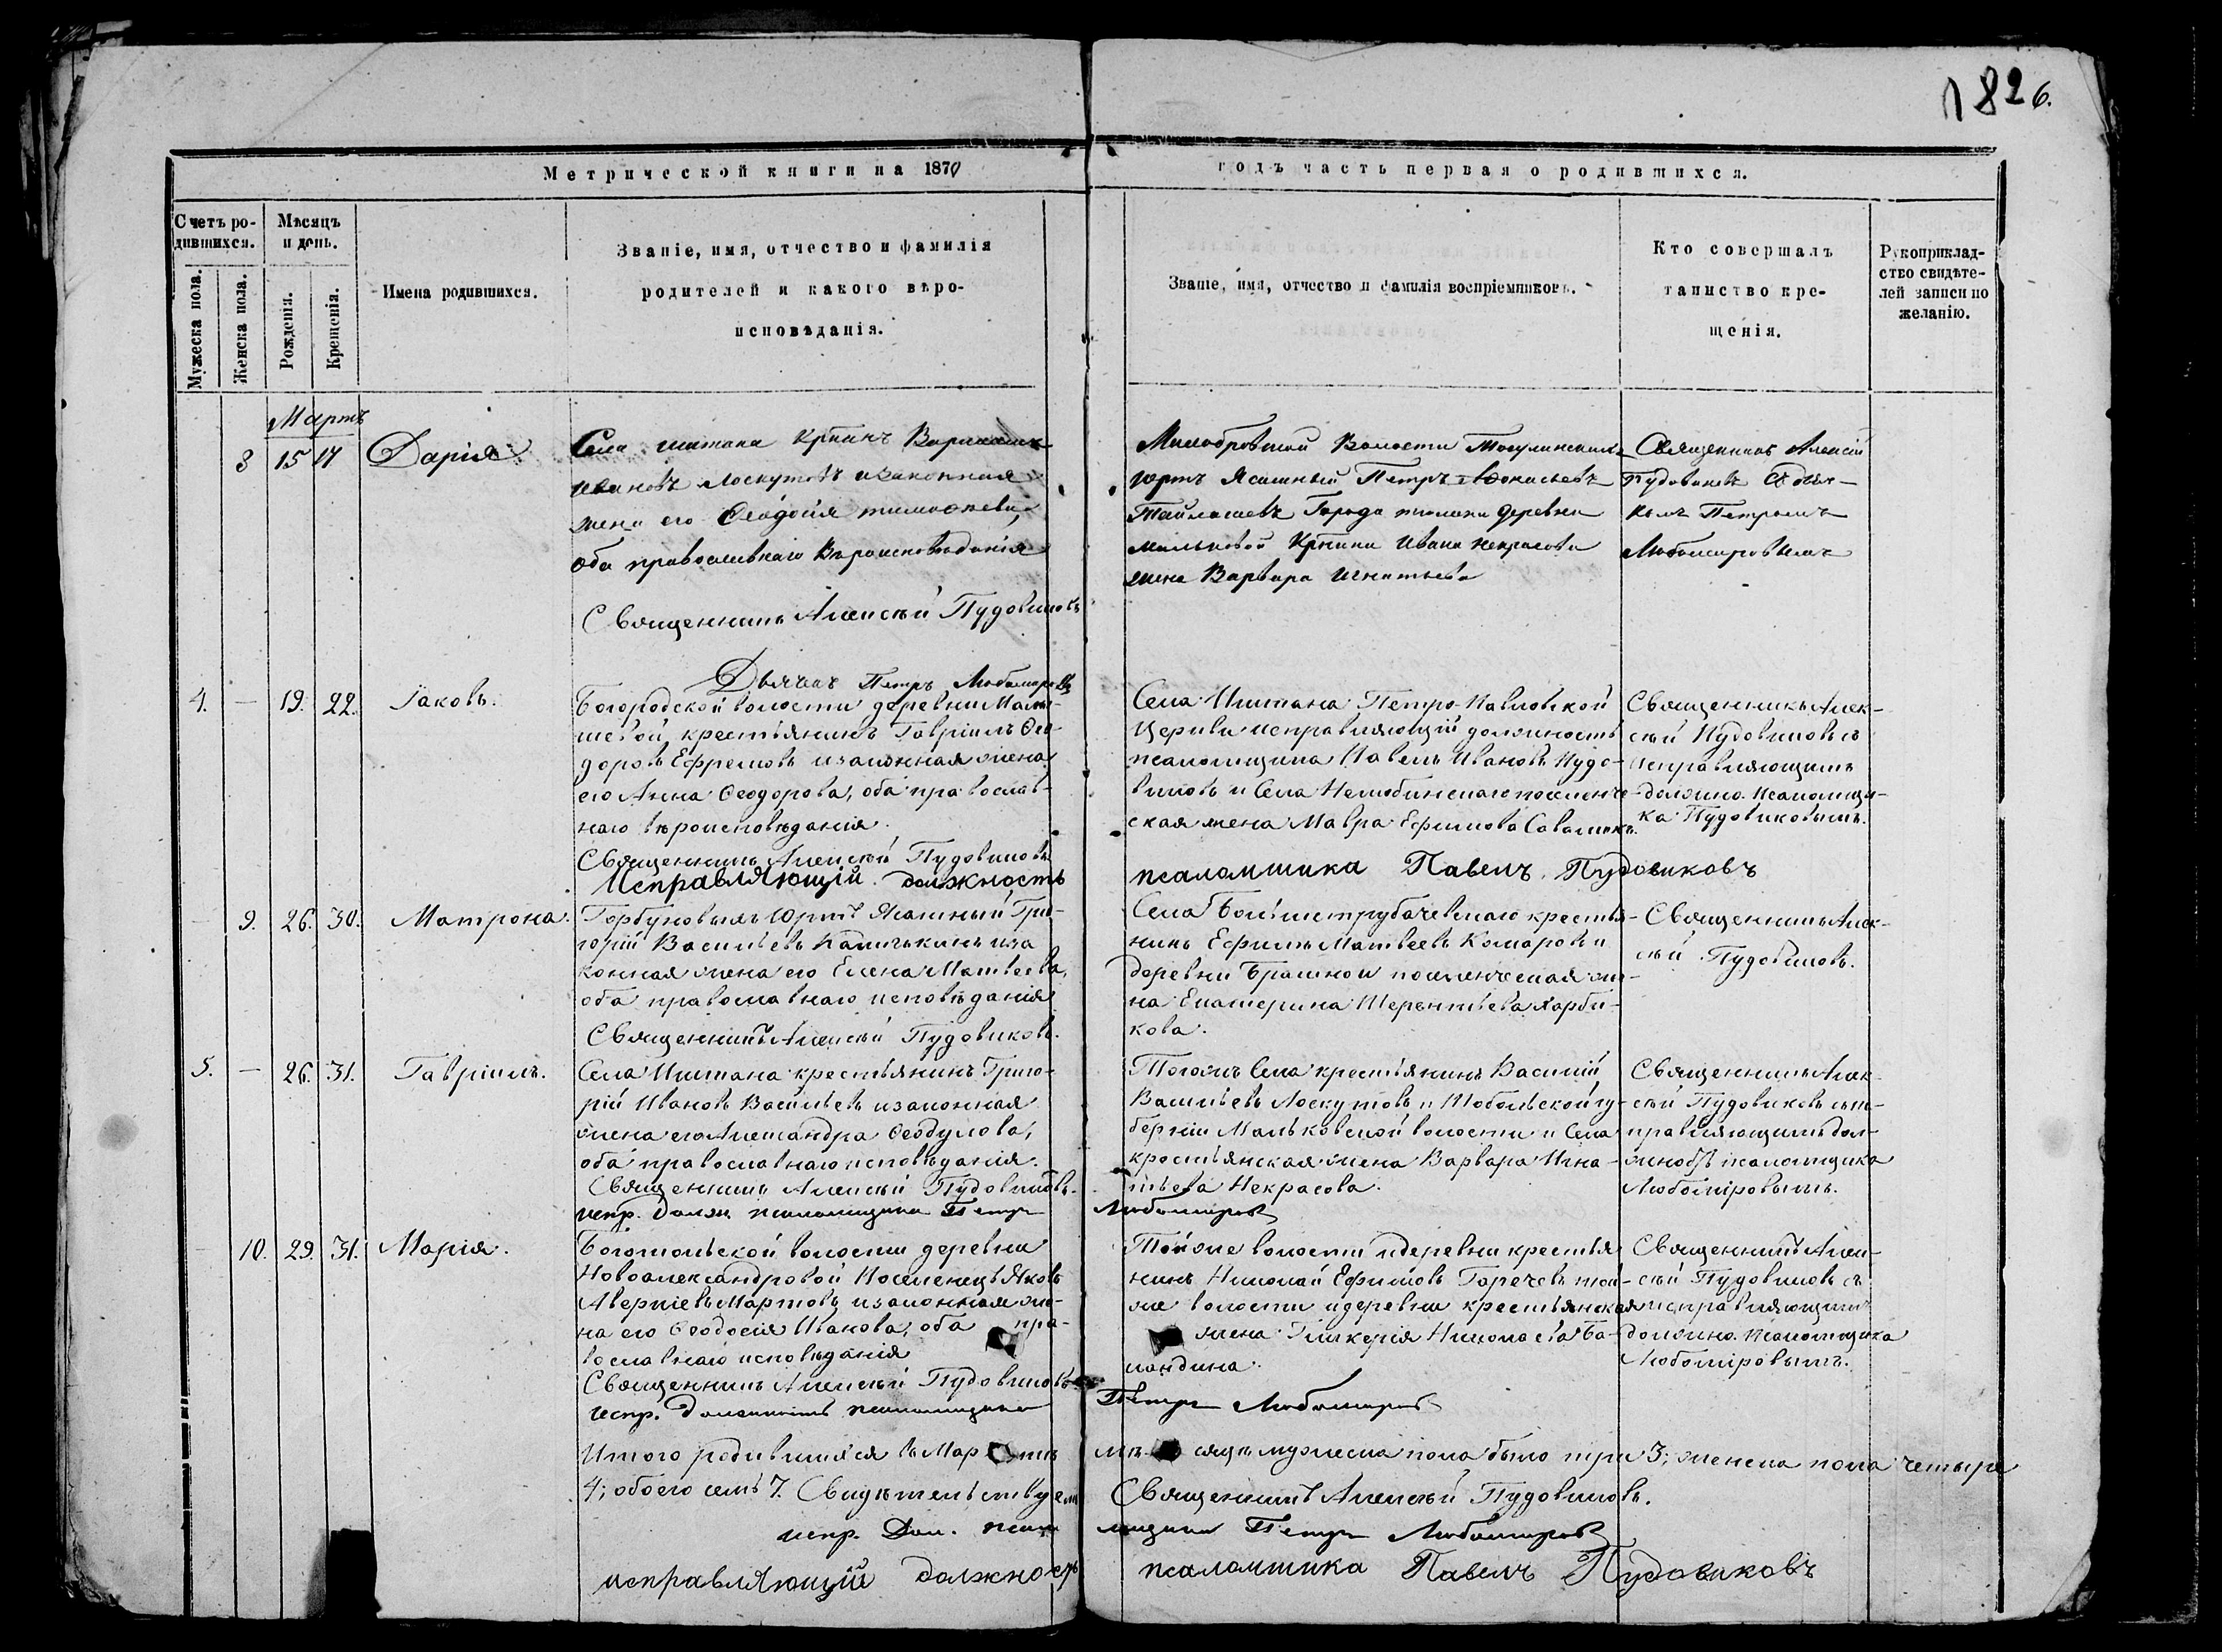 182 б.
Метрической книги на 1870
годъ часть первая о родившихся.
Счетъ ро-
дившихся.
Мѣсяцъ
и день.
Мужеска пола.
Женска пола.
Рожденія.
Крещенія.
Имена родившихся.
Званіе, имя, отчество и фамилія
родителей и какого вѣро-
исповѣданія.
Званіе, имя, отчество и фамилія воспріемниковъ.
Кто совершалъ
таинство кре-
щенія.
Рукоприклад-
ство свидѣте-
лей записи по
желанію.
Мартъ
8 15 17 Дарія
Села Иштана
Ивановъ Лоскутовъ и законная
жена его Ѳеодосія Тимоѳеева,
оба православнаго Вѣроисповѣданія
Священникъ Алексѣй Пудовиковъ
Дьячекъ Петръ Любомировъ
Волости Тогулинскихъ
юртъ Ясашный Петръ
Города деревни
Мальковой Ивана Некрасова
жена Варвара Игнатьева
Священникъ Алексій
Пудовиковъ съ дьяч-
комъ Петромъ
Любомировымъ
4. — 19. 22. Іаковъ.
Богородской волости деревни
крестьянинъ Гавріилъ Ѳео-
доровъ Ефремовъ и законная жена
его Анна Ѳеодорова, оба православ-
наго вѣроисповѣданія.
Священникъ Алексѣй Пудовиковъ
Исправляющій должность
Села Иштана Петро-Павловской
Церкви исправляющій должность
псаломщика Павелъ Ивановъ Пудо-
виковъ и Села Нелюбинскаго поселенче-
ская жена Мавра Ефимова
псаломшика Павелъ Пудовиковъ
Священникъ Алек-
сѣй Пудовиковъ съ
исправляющимъ
должно. псаломщи-
ка Пудовиковымъ.
9. 26. 30. Матрона.
Горбуновыхъ Юртъ Ясашный Гри-
горій Васильевъ и за
конная жена его Елена Матвеева,
оба православнаго исповѣданія
Священникъ Алексѣй Пудовиковъ.
Села Большетрубачевскаго крестья-
нинъ Ефимъ Матвеевъ Комаровъ и
деревни Бражной поселенческая же-
на Екатерина Терентьева Харби-
кова.
Священникъ Алек-
сѣй Пудовиковъ.
5. — 26. 31. Гавріилъ.
Села Иштана крестьянинъ Григо-
рій Ивановъ Васильевъ и законная
жена его Александра Ѳеодулова,
оба православнаго исповѣданія.
Священникъ Алексѣй Пудовиковъ.
испр. должн. псаломщика Петръ
Тогожъ Села крестьянинъ Василій
Васильевъ Лоскутовъ и Тобольской гу-
берніи Мальковской волости и Села
крестьянская жена Варвара Игна-
тьева Некрасова.
Любомировъ
Священникъ Алек-
сѣй Пудовиковъ съ ис-
правляющимъ дол-
жность псаломщика
Любоміровымъ.
10. 29. 31. Марія.
Боготольской волости деревни
Новоалександровой Поселенецъ Яковъ
Аверкіевъ Мартовъ и законная же-
на его Ѳеодосія Иванова, оба пра-
вославнаго исповѣданія
Священникъ Алексѣй Пудовиковъ
Испр. должность псаломщика
Той же волости и деревни крестья
нинъ Николай Ефимовъ Горечевъ той-
же волости и деревни крестьянская
жена Гликерія Николаева Ба-
ландина.
Петръ Любомировъ
Священникъ Алек-
сѣй Пудовиковъ съ
исправляющимъ
должно. псаломщика
Любоміровымъ.
Итого родившихся въ Мартѣ
мѣсяцѣ мужеска пола было три 3; женска пола четыре
4; обоего семь 7. Свидѣтельствуем
Священникъ Алексѣй Пудовиковъ.
испр. Дол. псало
мщика Петръ Любомировъ
исправляющій должность
псаломшика Павелъ Пудовиковъ